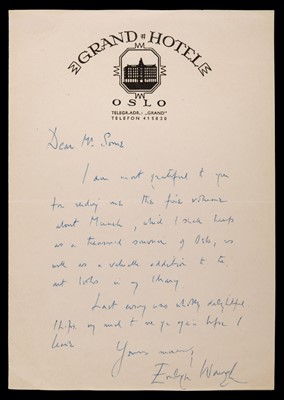 GRAND HOTEL
OSLO
TELEGR.ADR.: "GRAND"
TELEFON 415820
Dear Mr Somé
I am most grateful to you
for sending me the fine volume
about Munch, which I shall keep
as a treasured souvenir of Oslo, as
well as a valuable addition to the
art books in my library.
Last evening was wholly delightful
I hope very much to see you again before I
leave
Yours sincerely,
Evelyn Waugh